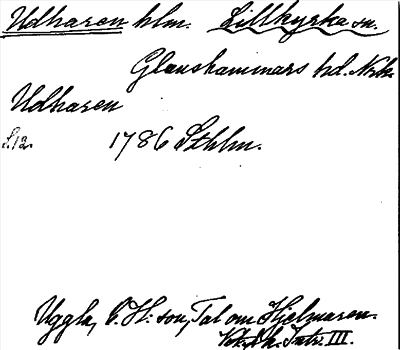 Udharen hlm. Lillkyrka sn.
Glanshammars hd. Nrk.
Udharen
S.12. 1786 Sthlm.
Uggla, C. H:son, Tal om Hjelmaren.
Intr. III.